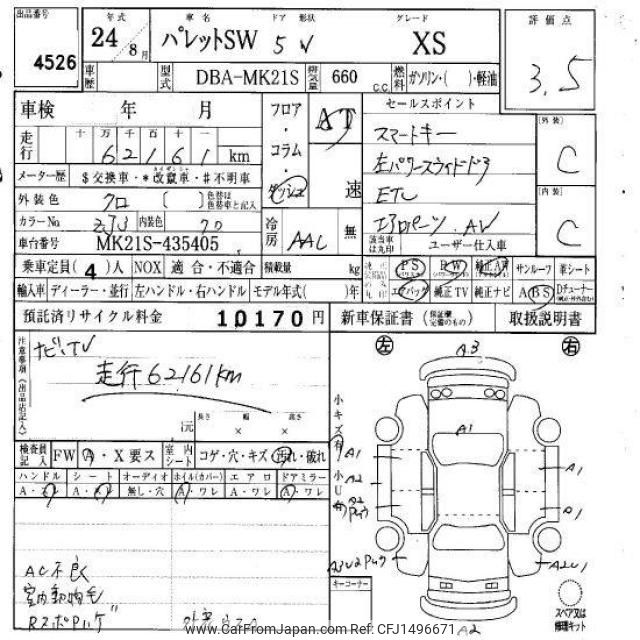 出品番号 4526
年式 24/8月
車名 パレットSW
ドア 形状 5 W
グレード XS
評価点 3.5
車歴
型式 DBA-MK21S
排気量 660 C.C.
燃料 ガソリン・( )・軽油
車検 年 月
フロア・コラム・
AT
速
セールスポイント
スマートキー
左パワースライドドア
ETC
エアロパーツ、AV
[外装] C
[内装] C
走行 十万千百十一
62161 km
メーター歴 $交換車・*改竄車・#不明車
外装色 クロ ( ) 色替は色替車と記入
カラーNo ZJ3 内装色 クロ
車台番号 MK21S-435405
冷房 AAC 無
該当車は丸印 ユーザー仕入車
乗車定員(4)人 NOX 適合・不適合 積載量 kg
PS PW 純正AW サンルーフ 革シート
輸入車 ディーラー・並行 左ハンドル・右ハンドル モデル年式( )年
エアバッグ 純正TV 純正ナビ ABS Dチューナー
預託済リサイクル料金 10170円
新車保証書 (保証継承可能のもの) 取扱説明書
注意事項(出品店記入)
ナビ、TV
走行62161km
冗
長さ 幅 高さ
× ×
検査員記入 FW A・X要ス 室内シート コゲ・穴・キズ 汚れ・破れ
ハンドル シート オーディオ ホイル(カバー) エアロ ドアミラー
A・スレ A・スレ 無し・穴 A・ワレ A・ワレ A・ワレ
AC不良
室内動物毛
左 右
小キズ有
小U有
A3
A1
A1
A2
A2
A1
A1
A2U1
A2
キーコーナー
スペア又は修理キット
www.CarFromJapan.com Ref: CFJ1496671